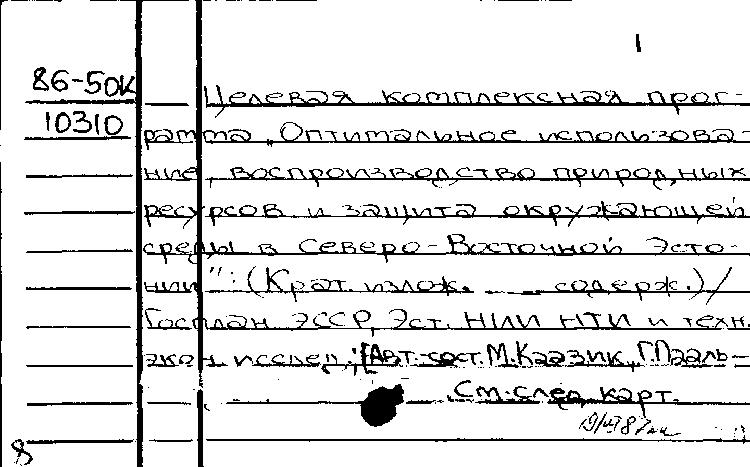 1
86-50К
10310
Целевая комплексная прог-
рамма „Оптимальное использова-
ние, воспроизводство природных
ресурсов и защита окружающей
среды в Северо-Восточной Эсто-
нии": (Крат. излож. содерж.)/
Госплан ЭССР, Эст. НИИ НТИ и техн.
экон исслед.; [Авт.-сост. М.Каазик, Г.Пааль-
См. след. карт.
8